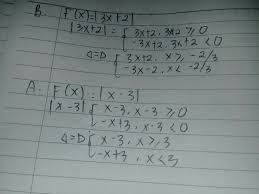 B. F(x) = |3x+2|
|3x+2| = { 3x+2, 3x+2 ≥ 0
-3x+2, 3x+2 < 0
⇔ { 3x+2, x ≥ -2/3
-3x-2, x < -2/3
A. F(x) = |x-3|
|x-3| { x-3, x-3 ≥ 0
-x+3, x-3 < 0
⇔ { x-3, x ≥ 3
-x+3, x < 3